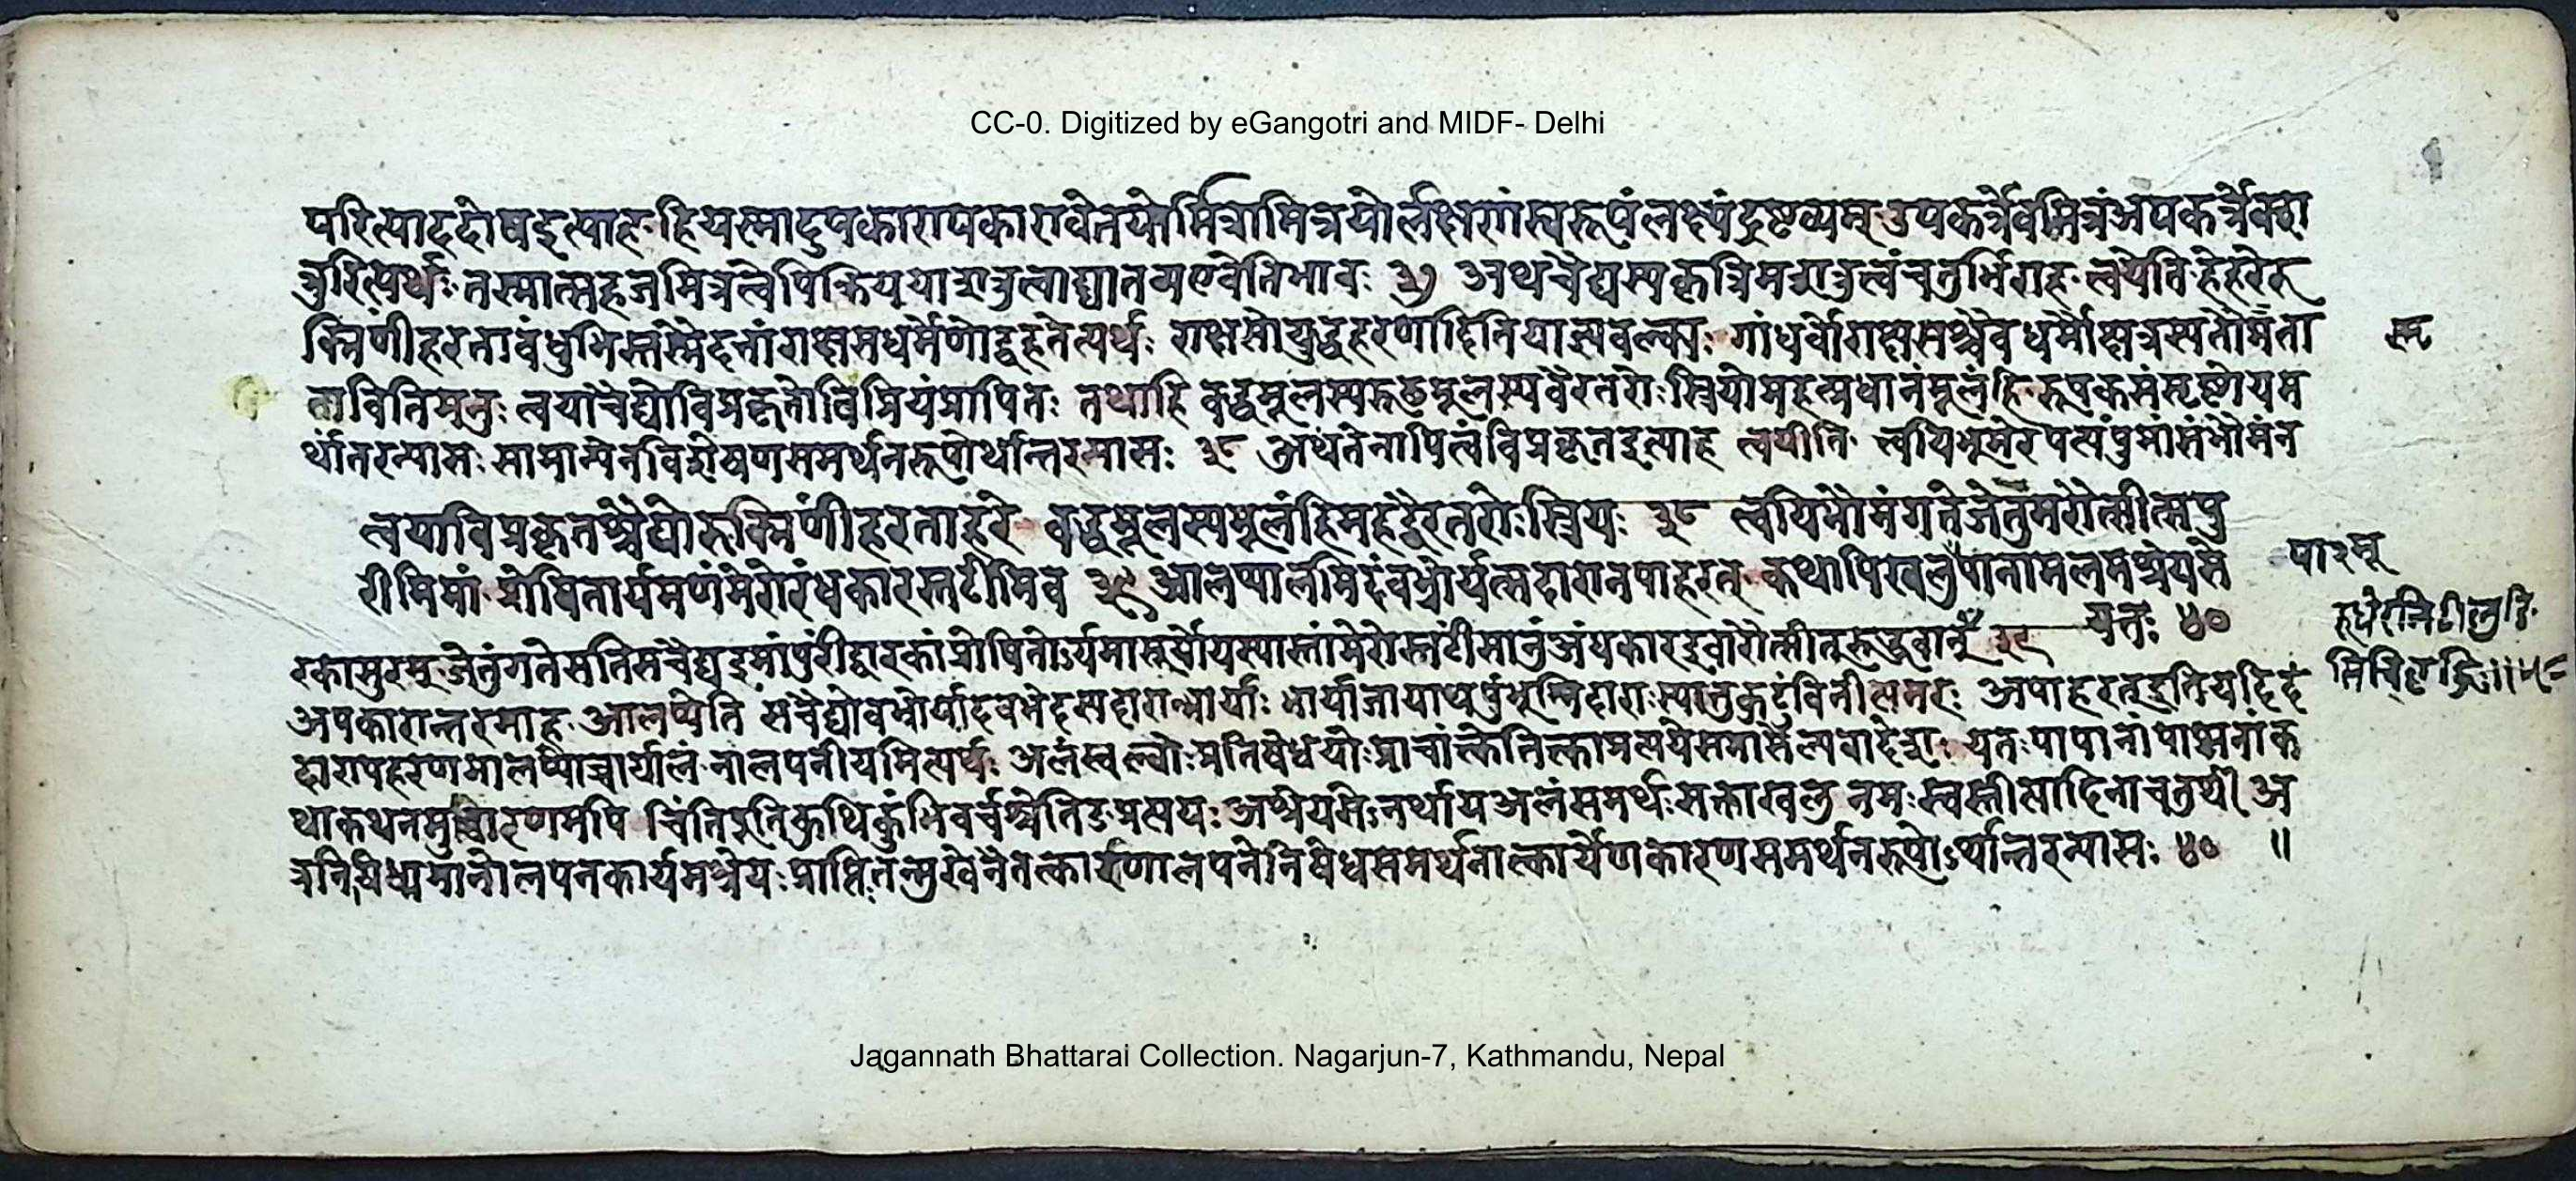 CC-0. Digitized by eGangotri and MIDF- Delhi
परित्याहदोषइत्याह हियस्मादुपकारापकारावेतयोर्मित्रामित्रयोर्लक्षणंस्वरूपंलक्ष्यंद्रष्टव्यम् उपकर्त्रेवमित्रंअपकर्त्रेवश
त्रुरित्यर्थः तस्मात्सहजमित्रत्वेपिक्रियया शत्रुत्वाद्यातव्यएवेतिभावः ३७ अथचैद्यस्यकृत्रिमशत्रुत्वंचतुर्भिराह त्वयेति हेहरेरु
क्मिणींहरता बंधुभिस्तस्मै राक्षसधर्मेणोद्वहतेत्यर्थः राक्षसोयुद्धहरणादितियाज्ञवल्क्यः गांधर्वोराक्षसश्चैवधर्मौक्षत्रस्यतौस्मृता
वितिमनुः त्वयाचैद्योविप्रकृतोविप्रियंप्रापितः तथाहि बद्धमूलस्यरूढमूलस्यवैरतरोःस्त्रियोमहत्प्रधानंमूलंहि रूपकसंसृष्टोयम
र्थांतरन्यासः सामान्येनविशेषणसमर्थनरूपोर्थान्तरन्यासः ३८ अथतेनापित्वंविप्रकृतइत्याह त्वयीति त्वयिभूमेरपत्यंपुमांसंभौमंन
त्वयाविप्रकृतश्चैद्योरुक्मिणींहरताहरे बद्धमूलस्यमूलंहिमहद्वैरतरोःस्त्रियः ३८ त्वयिभौमंगतेजेतुमरोत्सीत्सपु
रीमिमां प्रोषितार्यमणंमेरोरंधकारस्तटीमिव ३९ आलप्यालमिदंबभ्रोर्यत्सदारानपाहरत् कथापिखलुपापानामलमश्रेयसे
यतः ४०
रकासुरम् जेतुंगतेसतिसचैद्यइमांपुरींद्वारकांप्रोषितोऽर्यमासूर्योयस्यास्तांमेरोस्तटींसानुंअंधकारइवारोत्सीत्रुरुद्धवान् ३९
अपकारान्तरमाह आलप्येति सचैद्योबभ्रोर्यादवभेदस्यदारान्भार्याः भार्याजायाथपुंभूम्निदाराःस्यात्तुकुटुंबिनीत्यमरः अपाहरत् इतियदिदं
दारापहरणमालप्योच्चार्यालं नालपनीयमित्यर्थः अलंखल्वोःप्रतिषेधयोःप्राचांत्क्वेतिक्त्वाप्रत्ययेसमासेल्यबादेशः यतःपापानांपाप्मनांक
थाकथनमुच्चारणमपि चिंतिपूजिकथिकुंबिचर्चश्चेतिङप्रत्ययः अश्रेयसेऽनर्थायअलंसमर्थः नमःस्वस्तीत्यादिनाचतुर्थी अ
त्रनिषिध्यमानालपनकार्यमश्रेयःप्राप्तिः कार्येणकारणसमर्थनरूपोऽर्थान्तरन्यासः ४० ॥
Jagannath Bhattarai Collection. Nagarjun-7, Kathmandu, Nepal